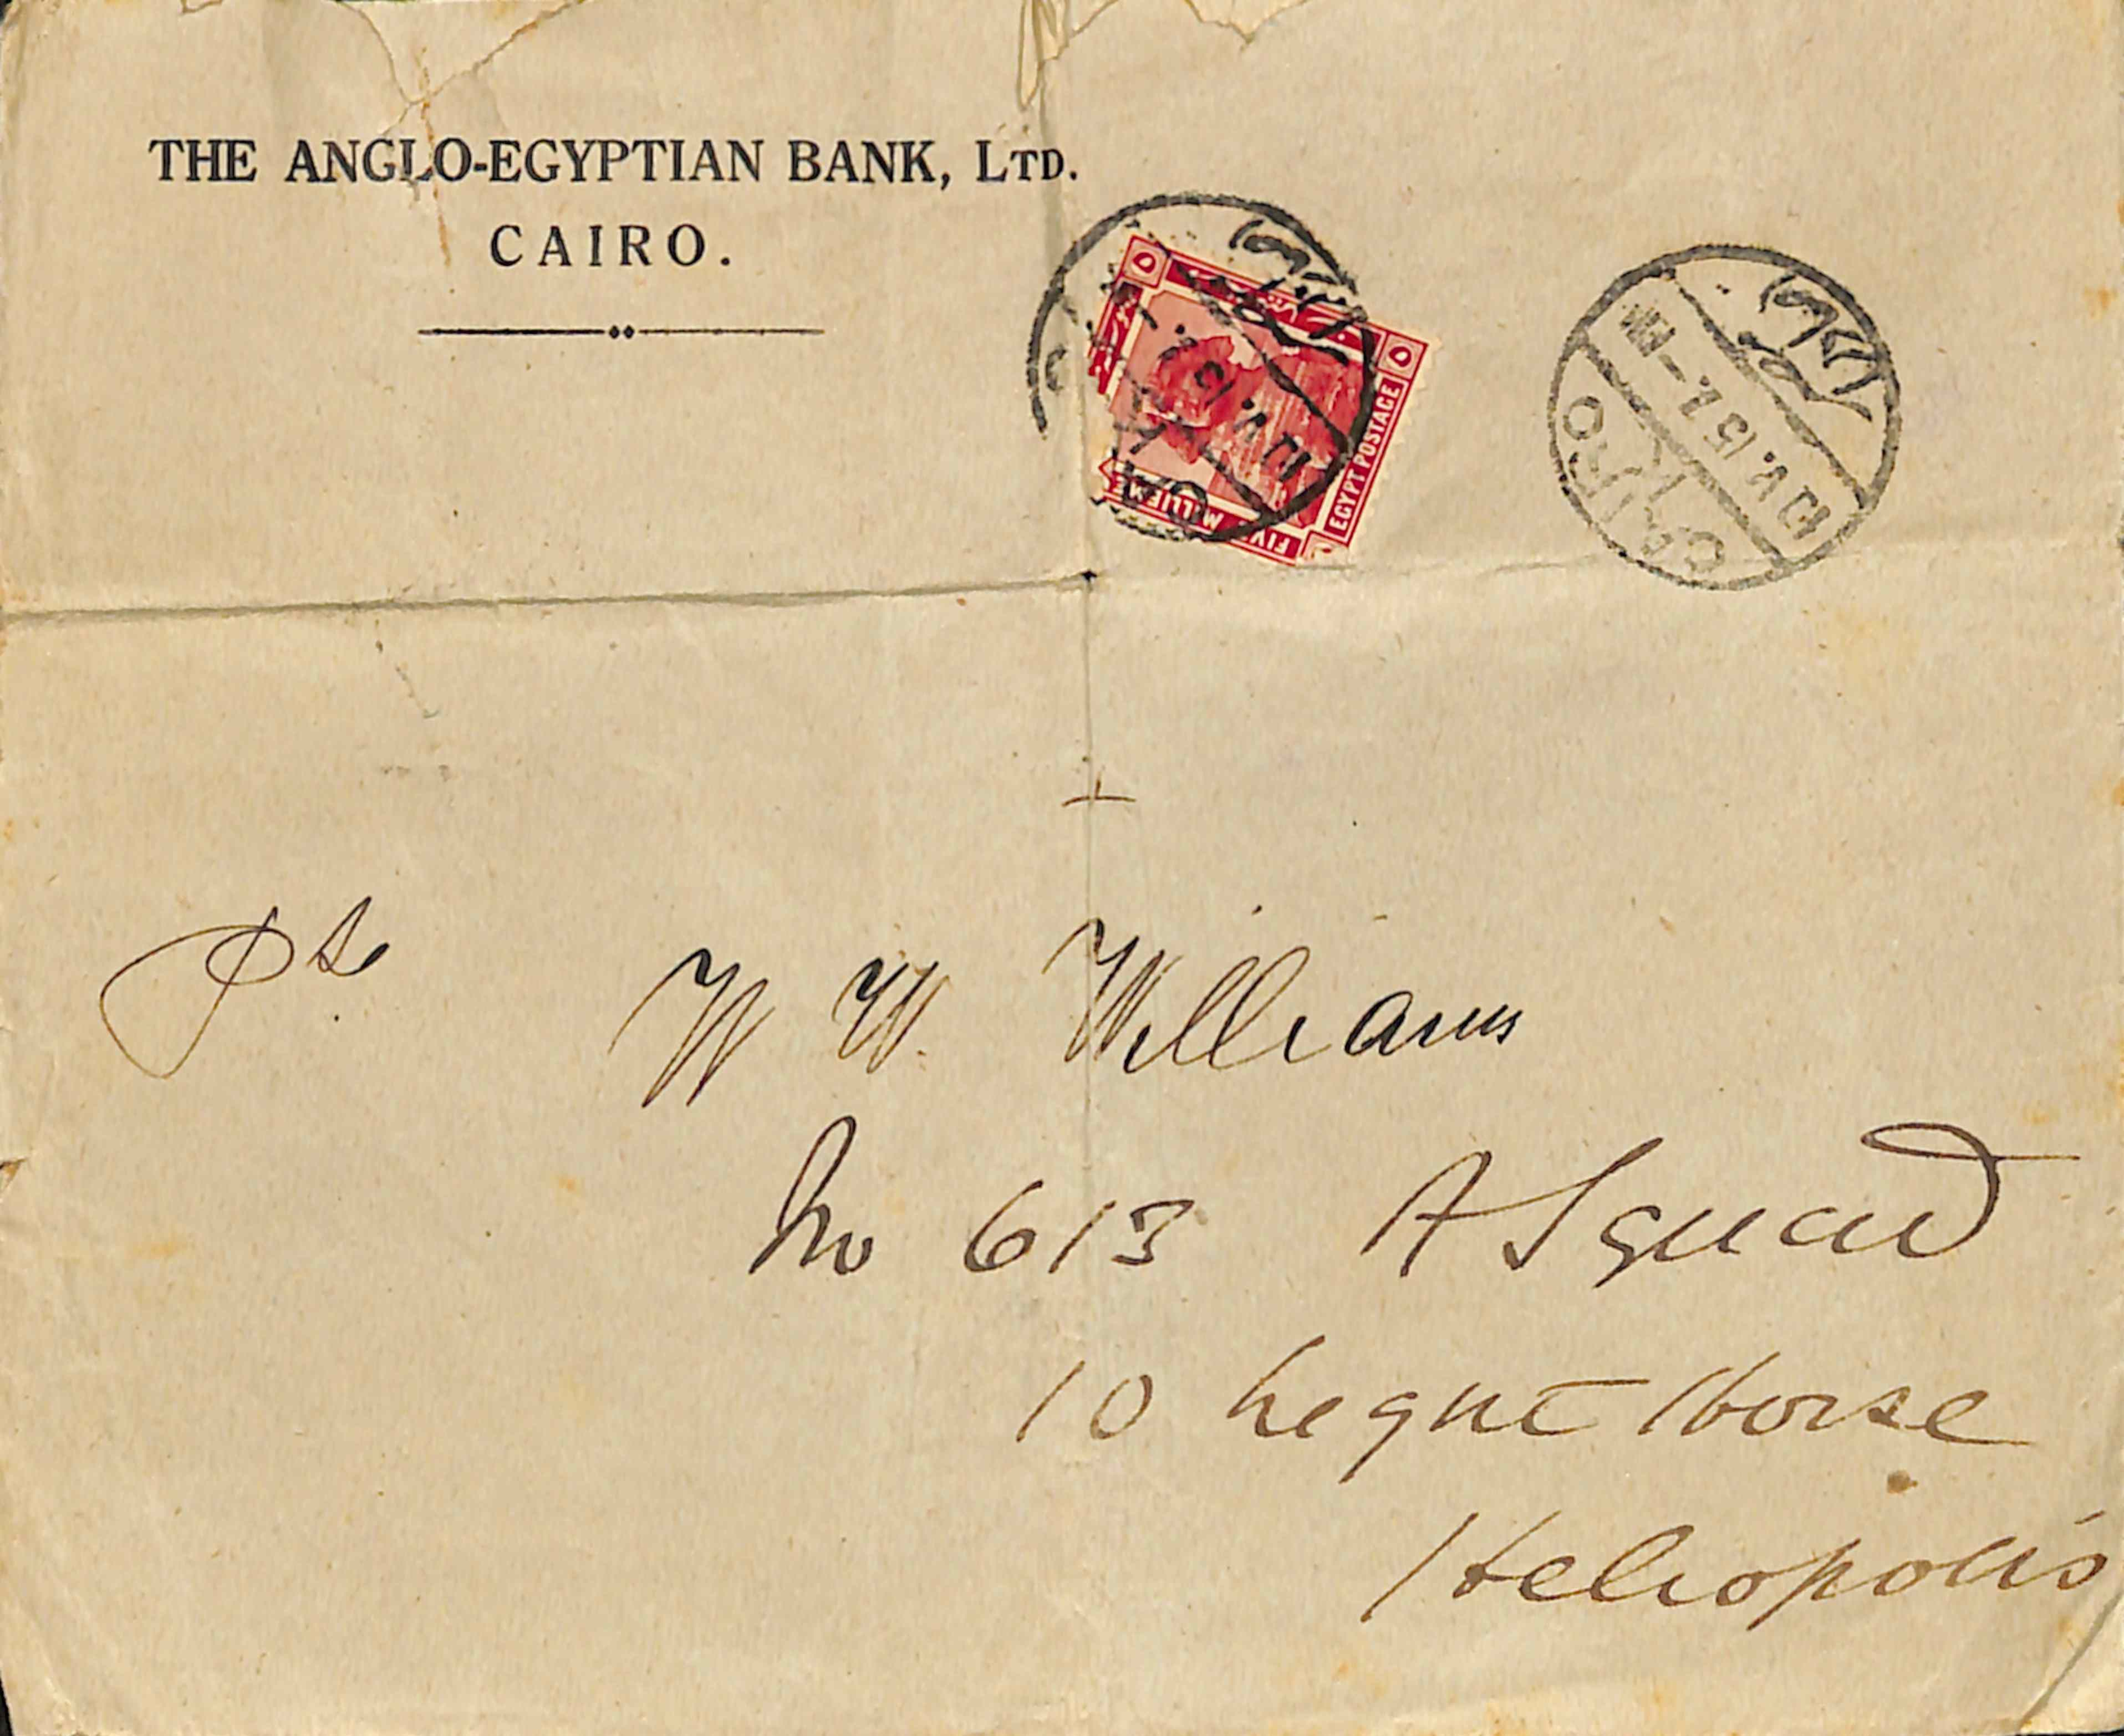 THE ANGLO-EGYPTIAN BANK, LTD.
CAIRO.
EGYPT POSTAGE
FIVE MILLIEMES
CAIRO
القاهرة
CAIRO
Pte W W. Williams
No 613 A Squad
10 Legnt Horse
Heliopolis